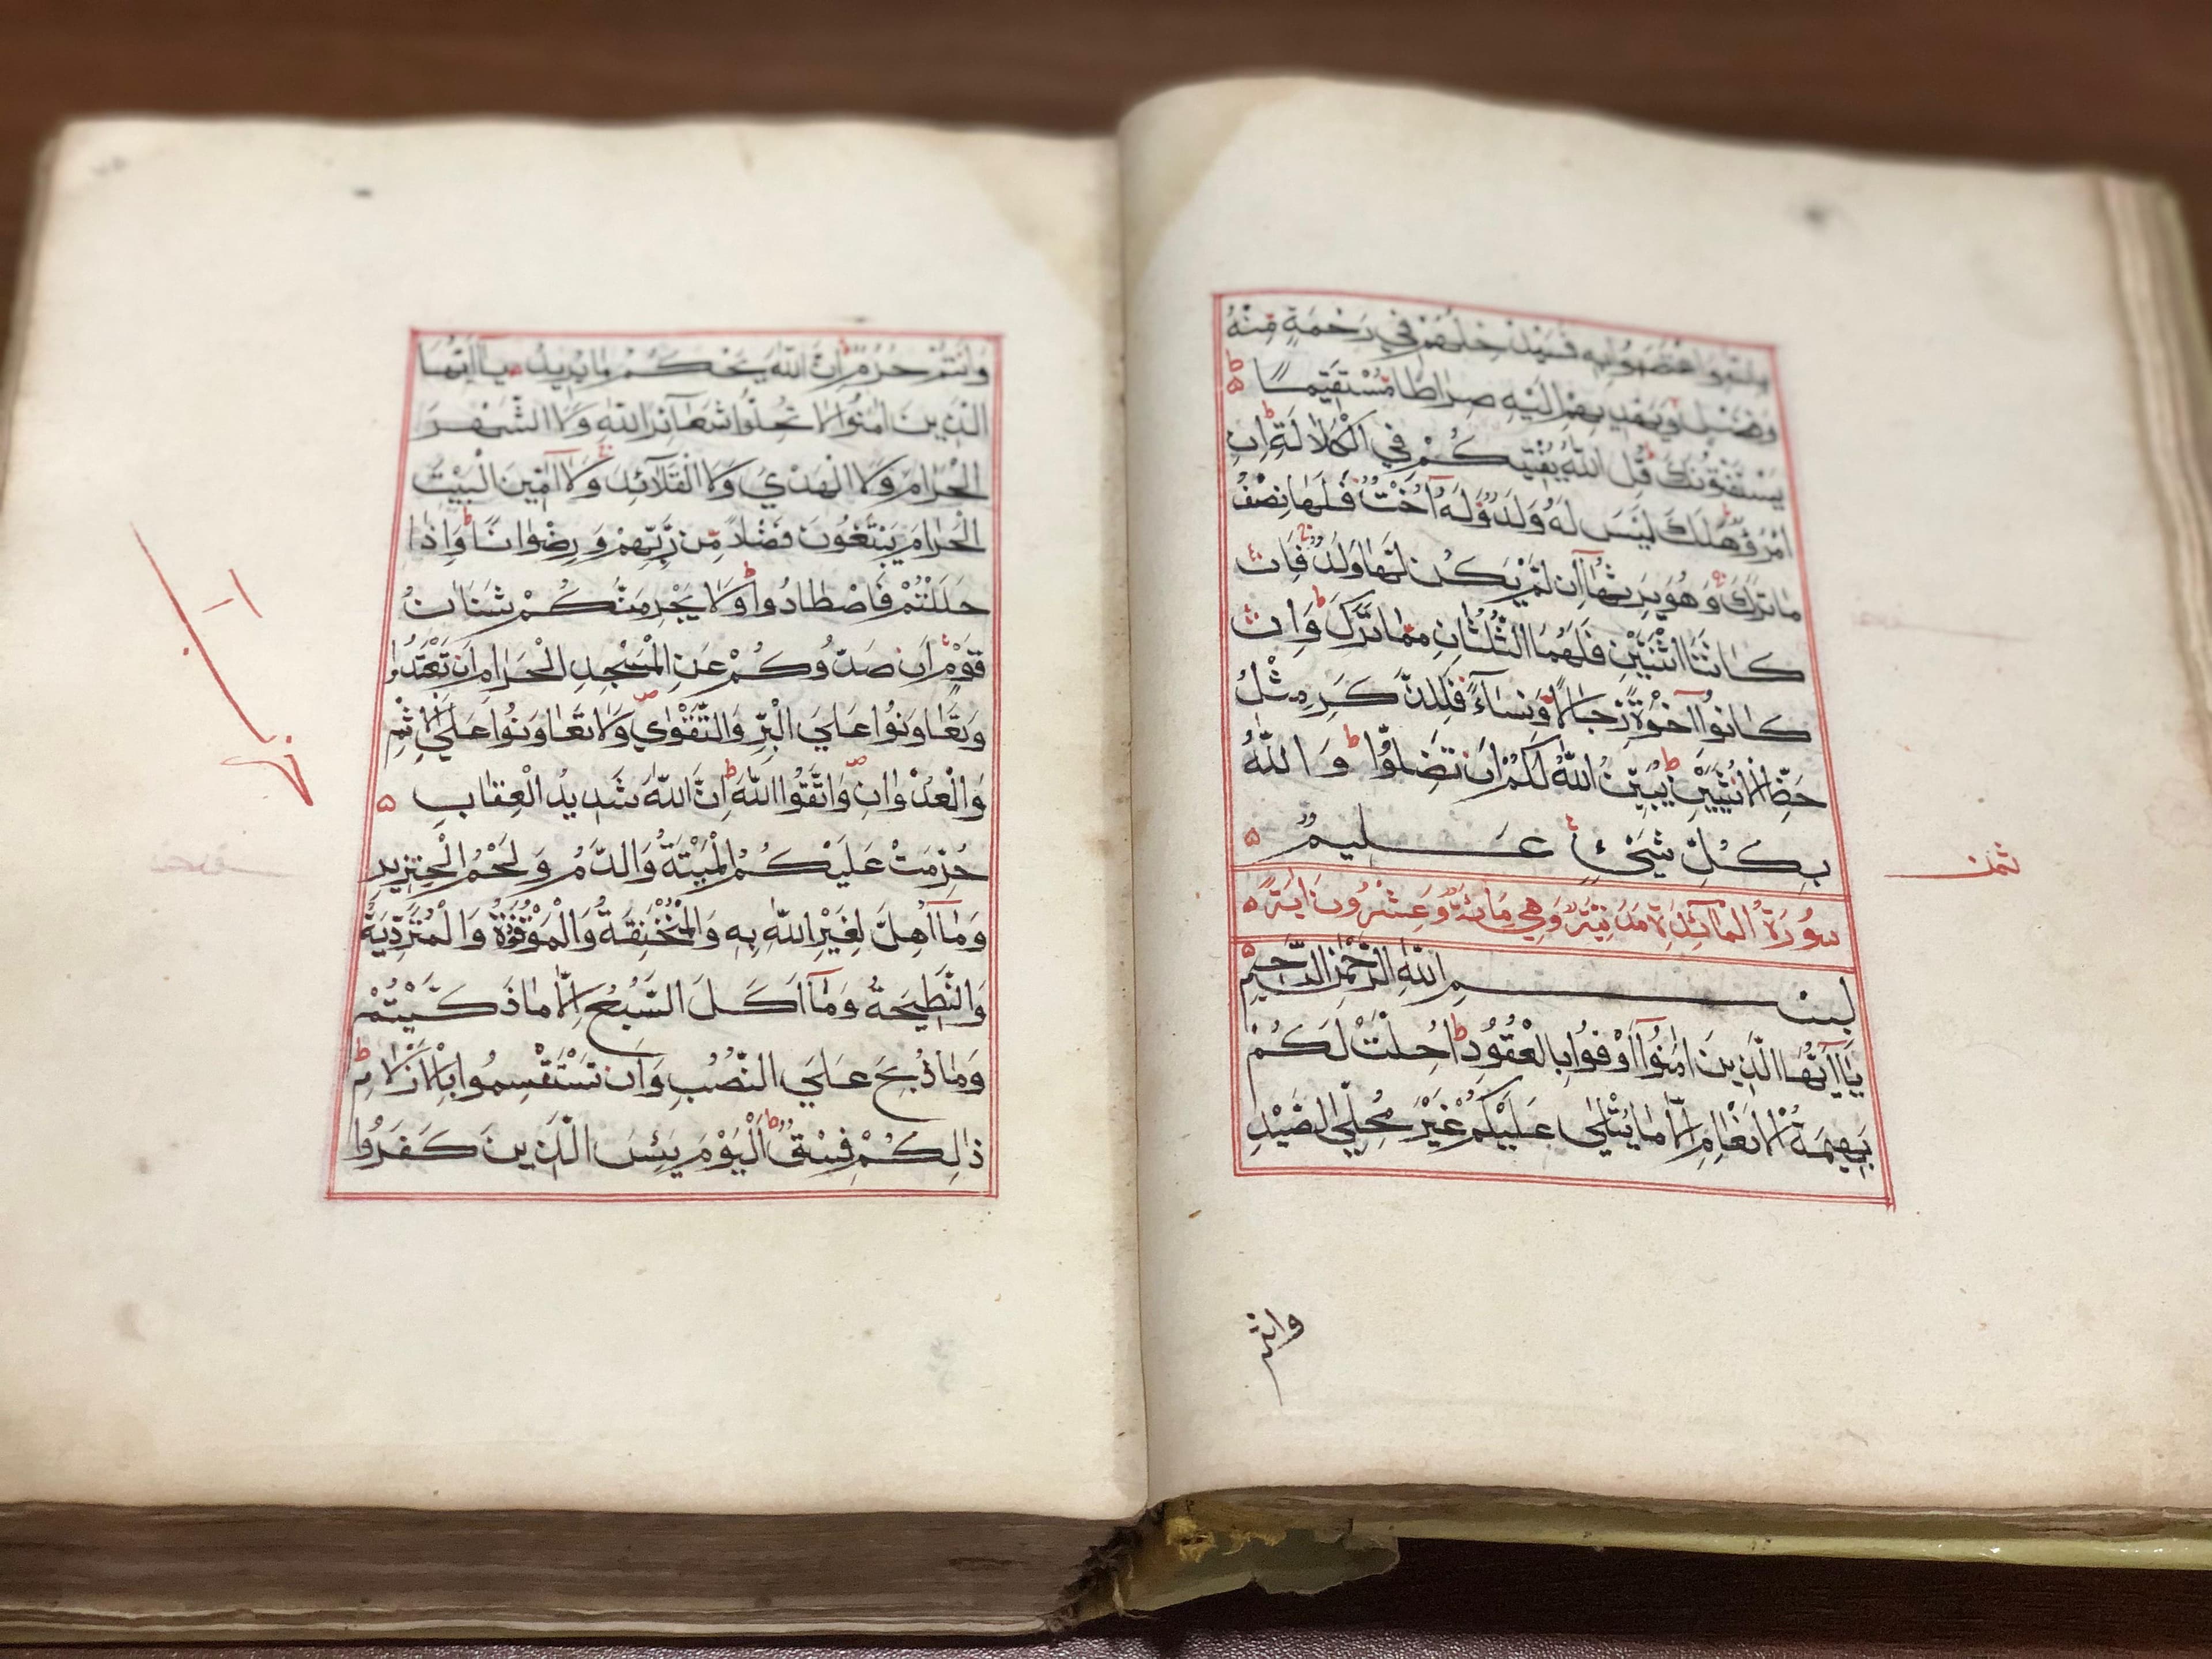 بِاللّٰهِ وَاعْتَصَمُوا بِهٖ فَسَيُدْخِلُهُمْ فِي رَحْمَةٍ مِنْهُ
وَفَضْلٍ وَيَهْدِيهِمْ اِلَيْهِ صِرَاطًا مُسْتَقِيمًا ط ۵
يَسْتَفْتُونَكَ ط قُلِ اللّٰهُ يُفْتِيكُمْ فِي الْكَلَالَةِ ط اِنِ
امْرُؤٌ هَلَكَ لَيْسَ لَهُ وَلَدٌ وَلَهُ اُخْتٌ فَلَهَا نِصْفُ
مَا تَرَكَ ج وَهُوَ يَرِثُهَا اِنْ لَمْ يَكُنْ لَهَا وَلَدٌ ط فَاِنْ
كَانَتَا اثْنَتَيْنِ فَلَهُمَا الثُّلُثَانِ مِمَّا تَرَكَ ط وَاِنْ
كَانُوا اِخْوَةً رِجَالًا وَنِسَاءً فَلِلذَّكَرِ مِثْلُ
حَظِّ الْاُنْثَيَيْنِ ط يُبَيِّنُ اللّٰهُ لَكُمْ اَنْ تَضِلُّوا ط وَاللّٰهُ
بِكُلِّ شَيْءٍ عَلِيمٌ ۵
ثمن
سُورَةُ الْمَائِدَةِ مَدَنِيَّةٌ وَهِيَ مِائَةٌ وَعِشْرُونَ اٰيَةً ۵
بِسْمِ اللّٰهِ الرَّحْمٰنِ الرَّحِيمِ ۵
يَا اَيُّهَا الَّذِينَ اٰمَنُوا اَوْفُوا بِالْعُقُودِ ط اُحِلَّتْ لَكُمْ
بَهِيمَةُ الْاَنْعَامِ اِلَّا مَا يُتْلٰي عَلَيْكُمْ غَيْرَ مُحِلِّي الصَّيْدِ
وانتم
وَاَنْتُمْ حُرُمٌ ط اِنَّ اللّٰهَ يَحْكُمُ مَا يُرِيدُ ۵ يَا اَيُّهَا
الَّذِينَ اٰمَنُوا لَا تُحِلُّوا شَعَائِرَ اللّٰهِ وَلَا الشَّهْرَ
الْحَرَامَ وَلَا الْهَدْيَ وَلَا الْقَلَائِدَ وَلَا اٰمِّينَ الْبَيْتَ
الْحَرَامَ يَبْتَغُونَ فَضْلًا مِنْ رَبِّهِمْ وَرِضْوَانًا ط وَاِذَا
حَلَلْتُمْ فَاصْطَادُوا ط وَلَا يَجْرِمَنَّكُمْ شَنَاٰنُ
قَوْمٍ اَنْ صَدُّوكُمْ عَنِ الْمَسْجِدِ الْحَرَامِ اَنْ تَعْتَدُوا
وَتَعَاوَنُوا عَلَي الْبِرِّ وَالتَّقْوٰي ص وَلَا تَعَاوَنُوا عَلَي الْاِثْمِ
وَالْعُدْوَانِ ص وَاتَّقُوا اللّٰهَ ط اِنَّ اللّٰهَ شَدِيدُ الْعِقَابِ ۵
حُرِّمَتْ عَلَيْكُمُ الْمَيْتَةُ وَالدَّمُ وَلَحْمُ الْخِنْزِيرِ
وَمَا اُهِلَّ لِغَيْرِ اللّٰهِ بِهٖ وَالْمُنْخَنِقَةُ وَالْمَوْقُوذَةُ وَالْمُتَرَدِّيَةُ
وَالنَّطِيحَةُ وَمَا اَكَلَ السَّبُعُ اِلَّا مَا ذَكَّيْتُمْ
وَمَا ذُبِحَ عَلَي النُّصُبِ وَاَنْ تَسْتَقْسِمُوا بِالْاَزْلَامِ ط
ذٰلِكُمْ فِسْقٌ ط اَلْيَوْمَ يَئِسَ الَّذِينَ كَفَرُوا